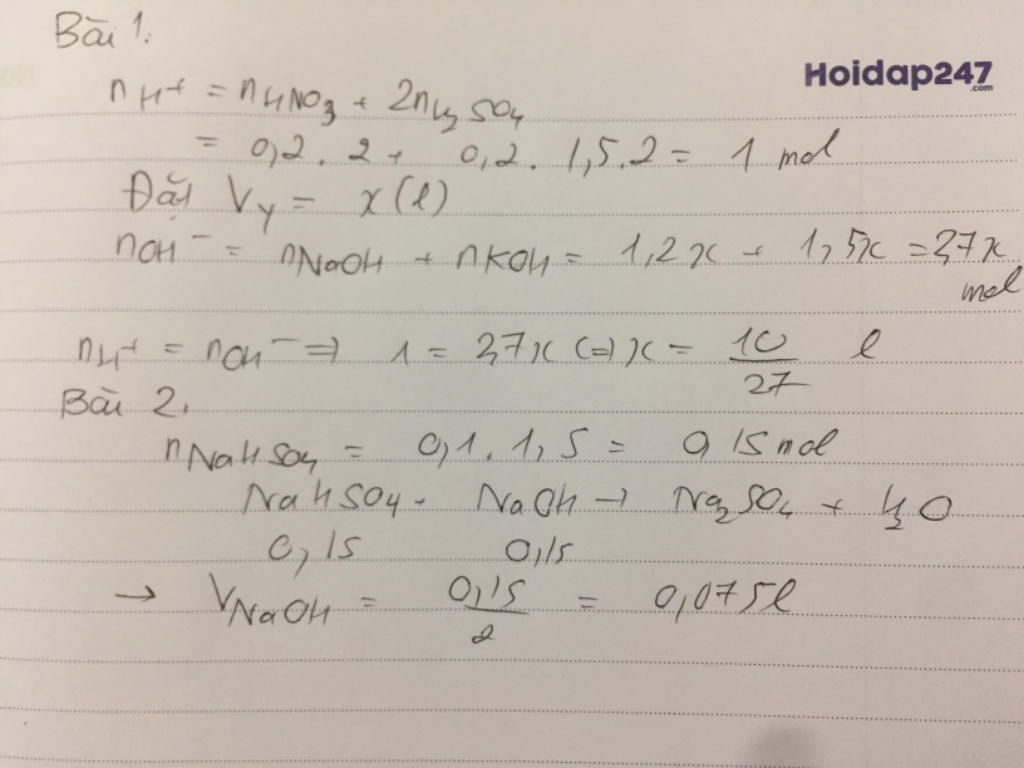 Bài 1.
Hoidap247
.com
nH+ = nHNO3 + 2nH2SO4
= 0,2 . 2 + 0,2 . 1,5.2 = 1 mol
Đặt VY = x (l)
nOH- = nNaOH + nKOH = 1,2x + 1,5x = 2,7x
mol
nH+ = nOH- => 1 = 2,7x <=> x = 10/27 l
Bài 2.
nNaHSO4 = 0,1 . 1,5 = 0,15 mol
NaHSO4 + NaOH → Na2SO4 + H2O
0,15 0,15
→ VNaOH = 0,15/2 = 0,075l